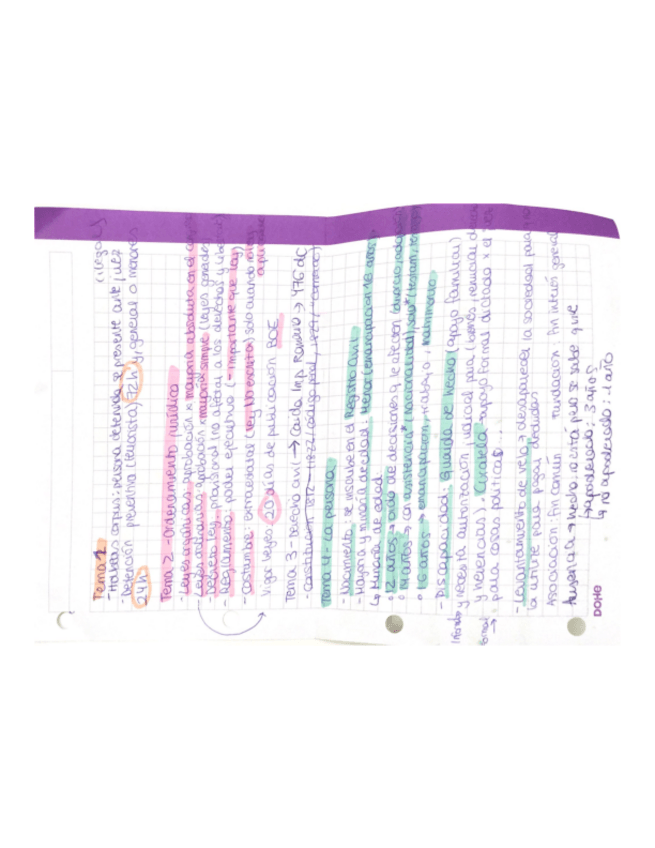 Tema 1
- Habeas corpus: persona detenida se presente ante juez (ilegales)
- Detención preventiva (terrorista) 72h y general o menores
24h
Tema 2 - Ordenamiento jurídico
- Leyes orgánicas: aprobación x mayoría absoluta en el
- Leyes ordinarias: aprobación x mayoría simple (leyes
- Decreto ley: provisional (no afectar a los derechos y
- Reglamento: poder ejecutivo (- importante que ley)
- Costumbre: extraestatal (ley no escrita) solo cuando
Vigor leyes 20 días de publicación BOE
Tema 3 - Derecho civil (→ Caída Imp. Romano → 476 dC
- Constitución 1812 - 1822 (código penal,
Tema 4 - La persona
- Nacimiento: se inscribe en el Registro civil
- Mayoría y minoría de edad.
↳ Minoría de edad:
• 12 años → oído de decisiones q le afecten (divorcio,
• 14 años → con asistencia* (nacionalidad), solo* (testam,
• 16 años → emancipación, trabajo, matrimonio
- Discapacidad: Guarda de hecho (apoyo familiar)
y necesita autorización judicial para (bienes, renunciar
y herencias). Curatela: apoyo formal dictado x el juez
→ para cosas políticas...
- Levantamiento de velo → desaparece la sociedad para
la atribute para pagar deudas
Asociación: Fin común Fundación: Fin interés general
Ausencia → hecho: no está pero se sabe que
↳ apoderado: 3 años
↳ no apoderado: 1 año
DOHE